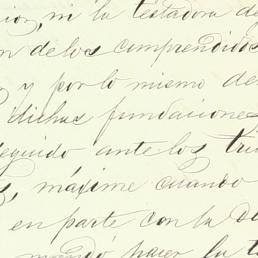 ni la testadora de
n de los comprendidos
y por lo mismo de
dichas fundaciones
eguido ante los tri
máxime cuando
en parte con la d
mandó hacer la t